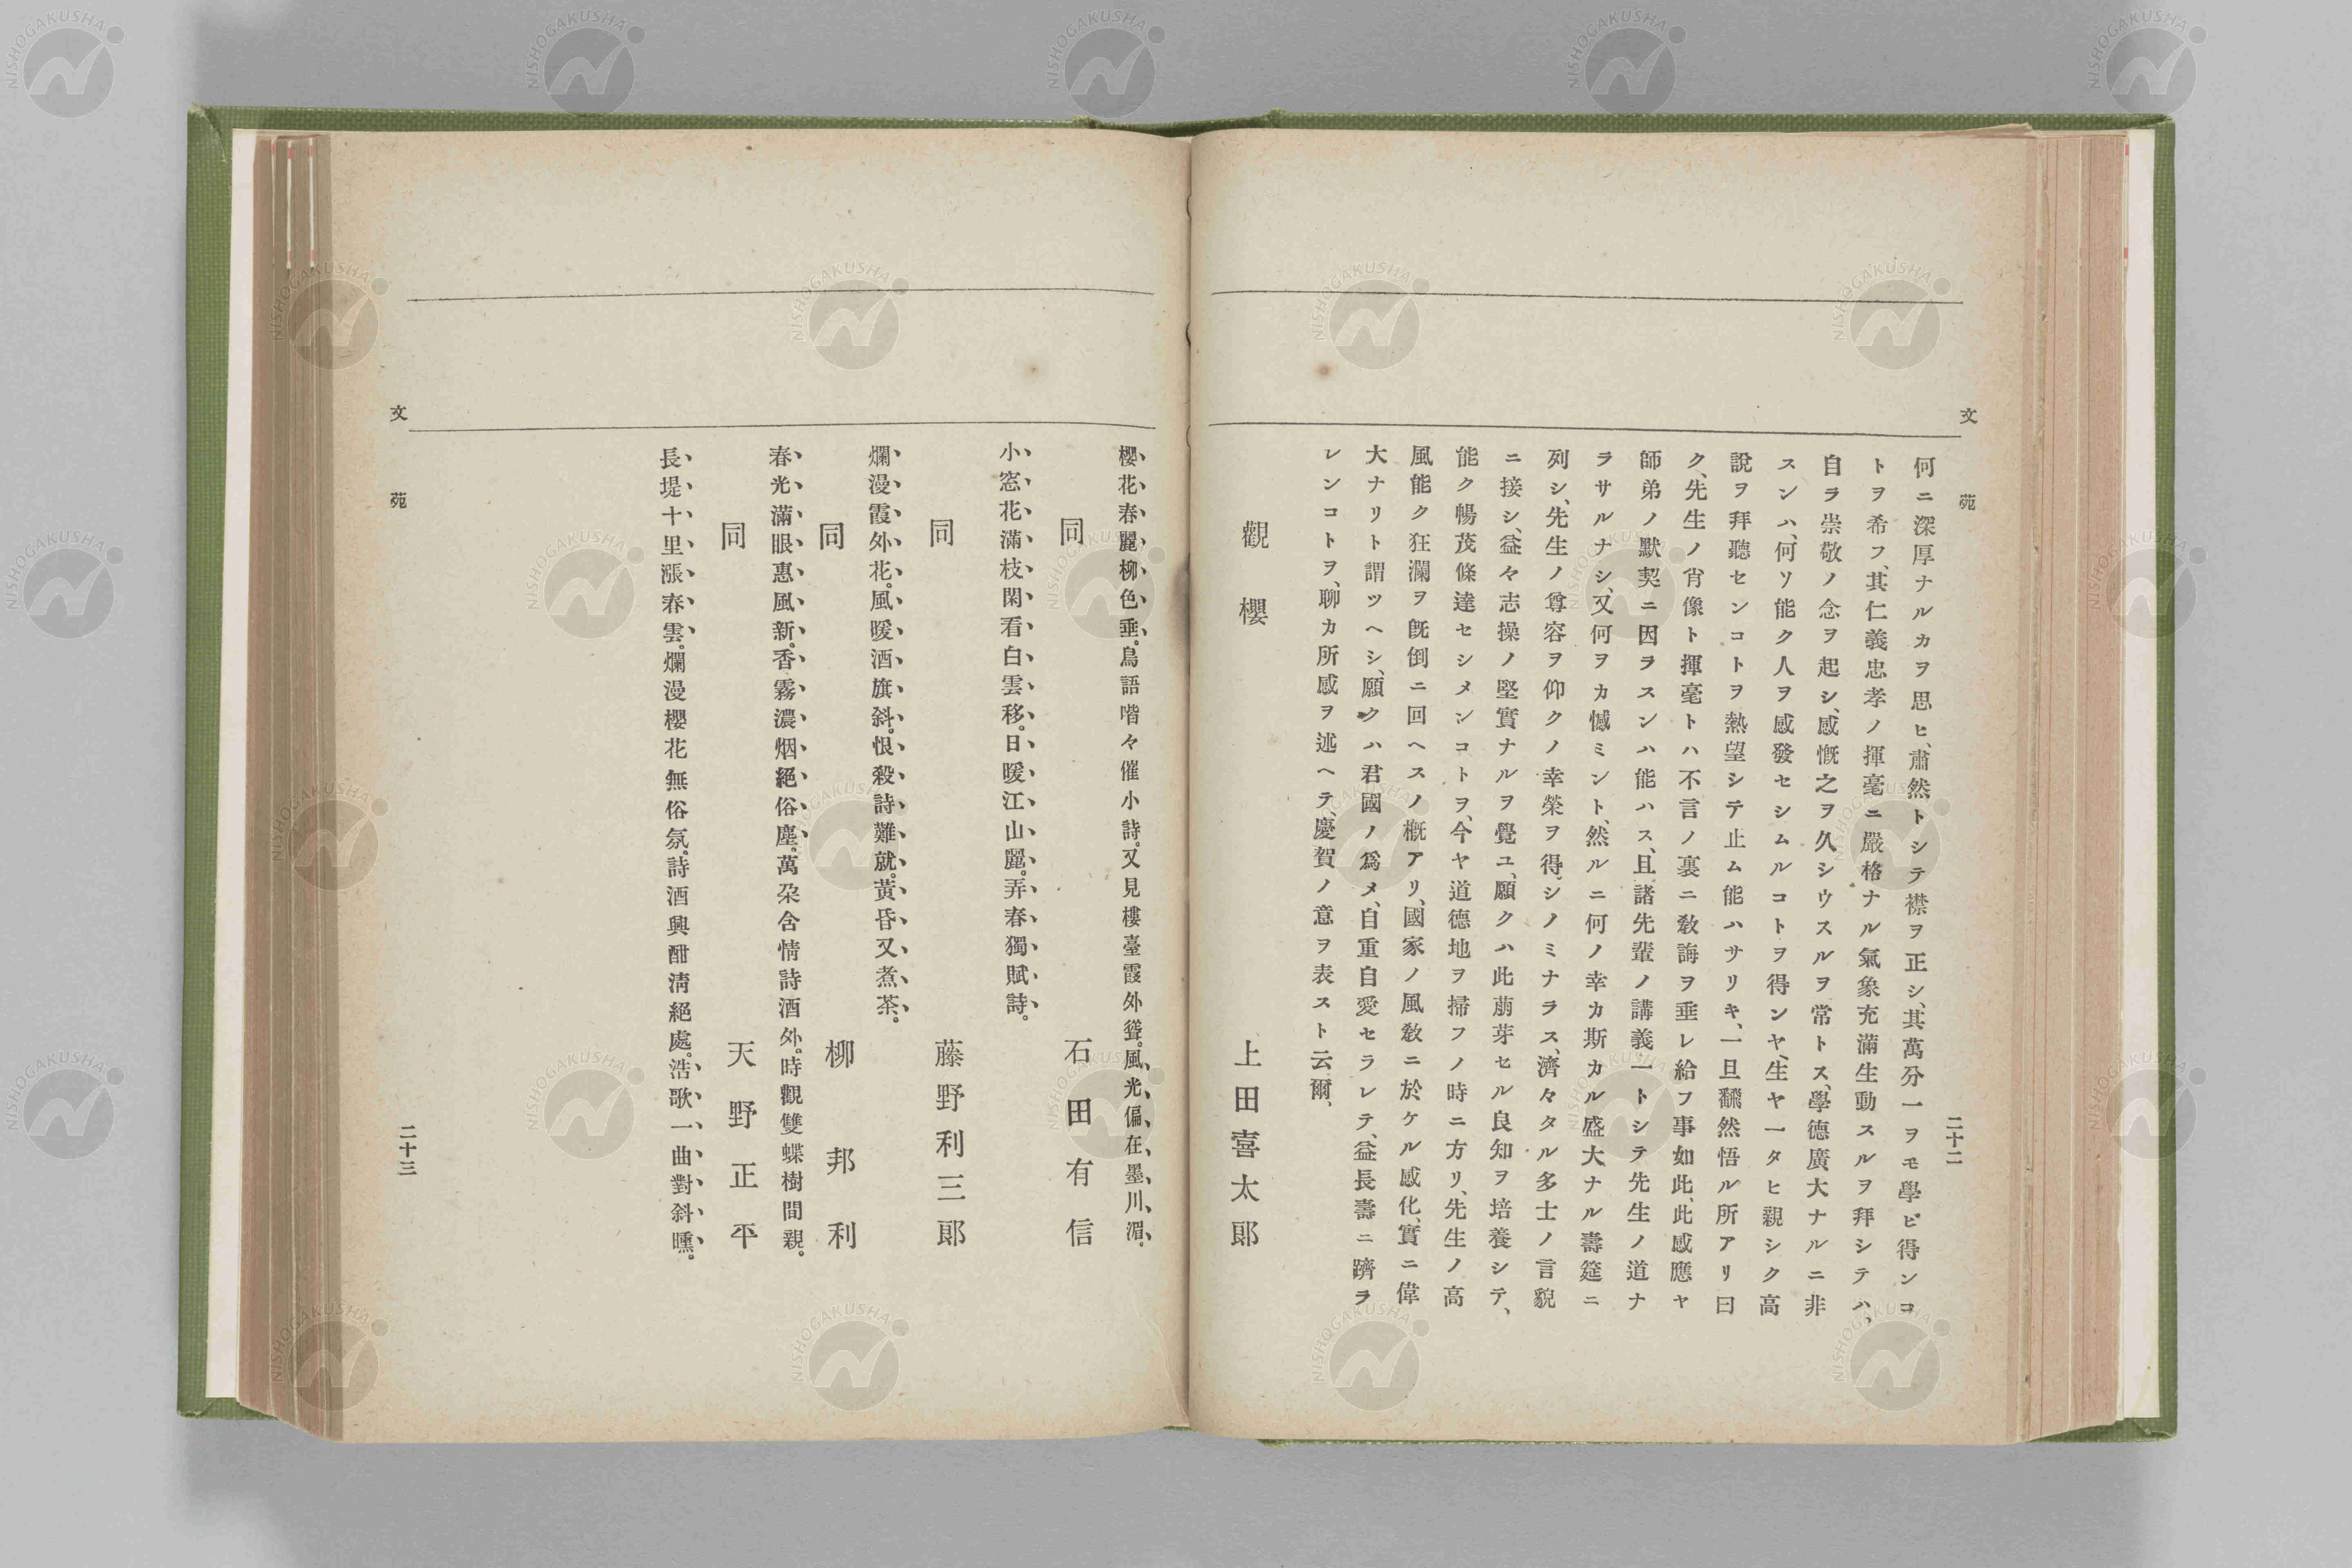 文苑
二十二
何ニ深厚ナルカヲ思ヒ、肅然トシテ襟ヲ正シ、其萬分一ヲモ學ビ得ンコ
トヲ希フ、其仁義忠孝ノ揮毫ニ嚴格ナル氣象充滿生動スルヲ拜シテハ、
自ラ崇敬ノ念ヲ起シ、感慨之ヲ久シウスルヲ常トス、學德廣大ナルニ非
スンハ、何ソ能ク人ヲ感發セシムルコトヲ得ンヤ、生ヤ一タヒ親シク高
說ヲ拜聽センコトヲ熱望シテ止ム能ハサリキ、一旦飜然悟ル所アリ曰
ク、先生ノ肖像ト揮毫トハ不言ノ裏ニ敎誨ヲ垂レ給フ事如此、此感應ヤ
師弟ノ默契ニ因ラスンハ能ハス、且諸先輩ノ講義一トシテ先生ノ道ナ
ラサルナシ、又何ヲカ憾ミント、然ルニ何ノ幸カ斯カル盛大ナル壽筵ニ
列シ、先生ノ尊容ヲ仰クノ幸榮ヲ得シノミナラス、濟々タル多士ノ言貌
ニ接シ、益々志操ノ堅實ナルヲ覺ユ、願クハ此萠芽セル良知ヲ培養シテ、
能ク暢茂條達セシメンコトヲ、今ヤ道德地ヲ掃フノ時ニ方リ、先生ノ高
風能ク狂瀾ヲ旣倒ニ回ヘスノ槪アリ、國家ノ風敎ニ於ケル感化、實ニ偉
大ナリト謂ツヘシ、願クハ君國ノ爲メ、自重自愛セラレテ、益長壽ニ躋ラ
レンコトヲ、聊カ所感ヲ述ヘテ、慶賀ノ意ヲ表スト云爾、
觀櫻 上田喜太郞
櫻花春麗柳色垂。鳥語喈々催小詩。又見樓臺霞外聳。風光偏在墨川湄。
同 石田有信
小窓花滿枝閑看白雲移。日暖江山麗。弄春獨賦詩。
同 藤野利三郞
爛漫霞外花。風暖酒旗斜。恨殺詩難就。黃昏又煮茶。
同 柳邦利
春光滿眼惠風新。香霧濃烟絕俗塵。萬朶含情詩酒外。時觀雙蝶樹間親。
同 天野正平
長堤十里漲春雲。爛漫櫻花無俗氛。詩酒興酣淸絕處。浩歌一曲對斜曛。
文苑
二十三
NISHOGAKUSHA